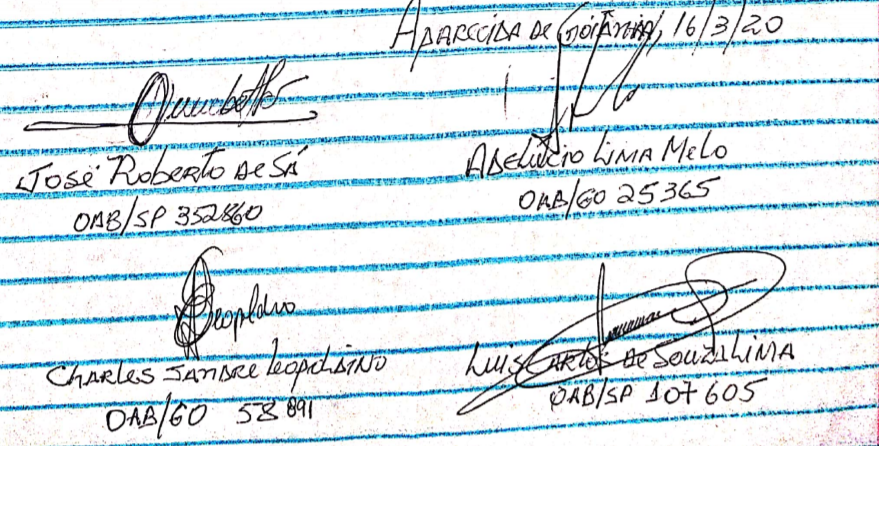 Aparecida de Goiânia, 16/3/20
José Roberto de Sá
OAB/SP 352860
Lima Melo
OAB/GO 25365
Leopoldino
Charles Leopoldino
OAB/GO 58 891
Luis Carlos de Souza Lima
OAB/SP 107605